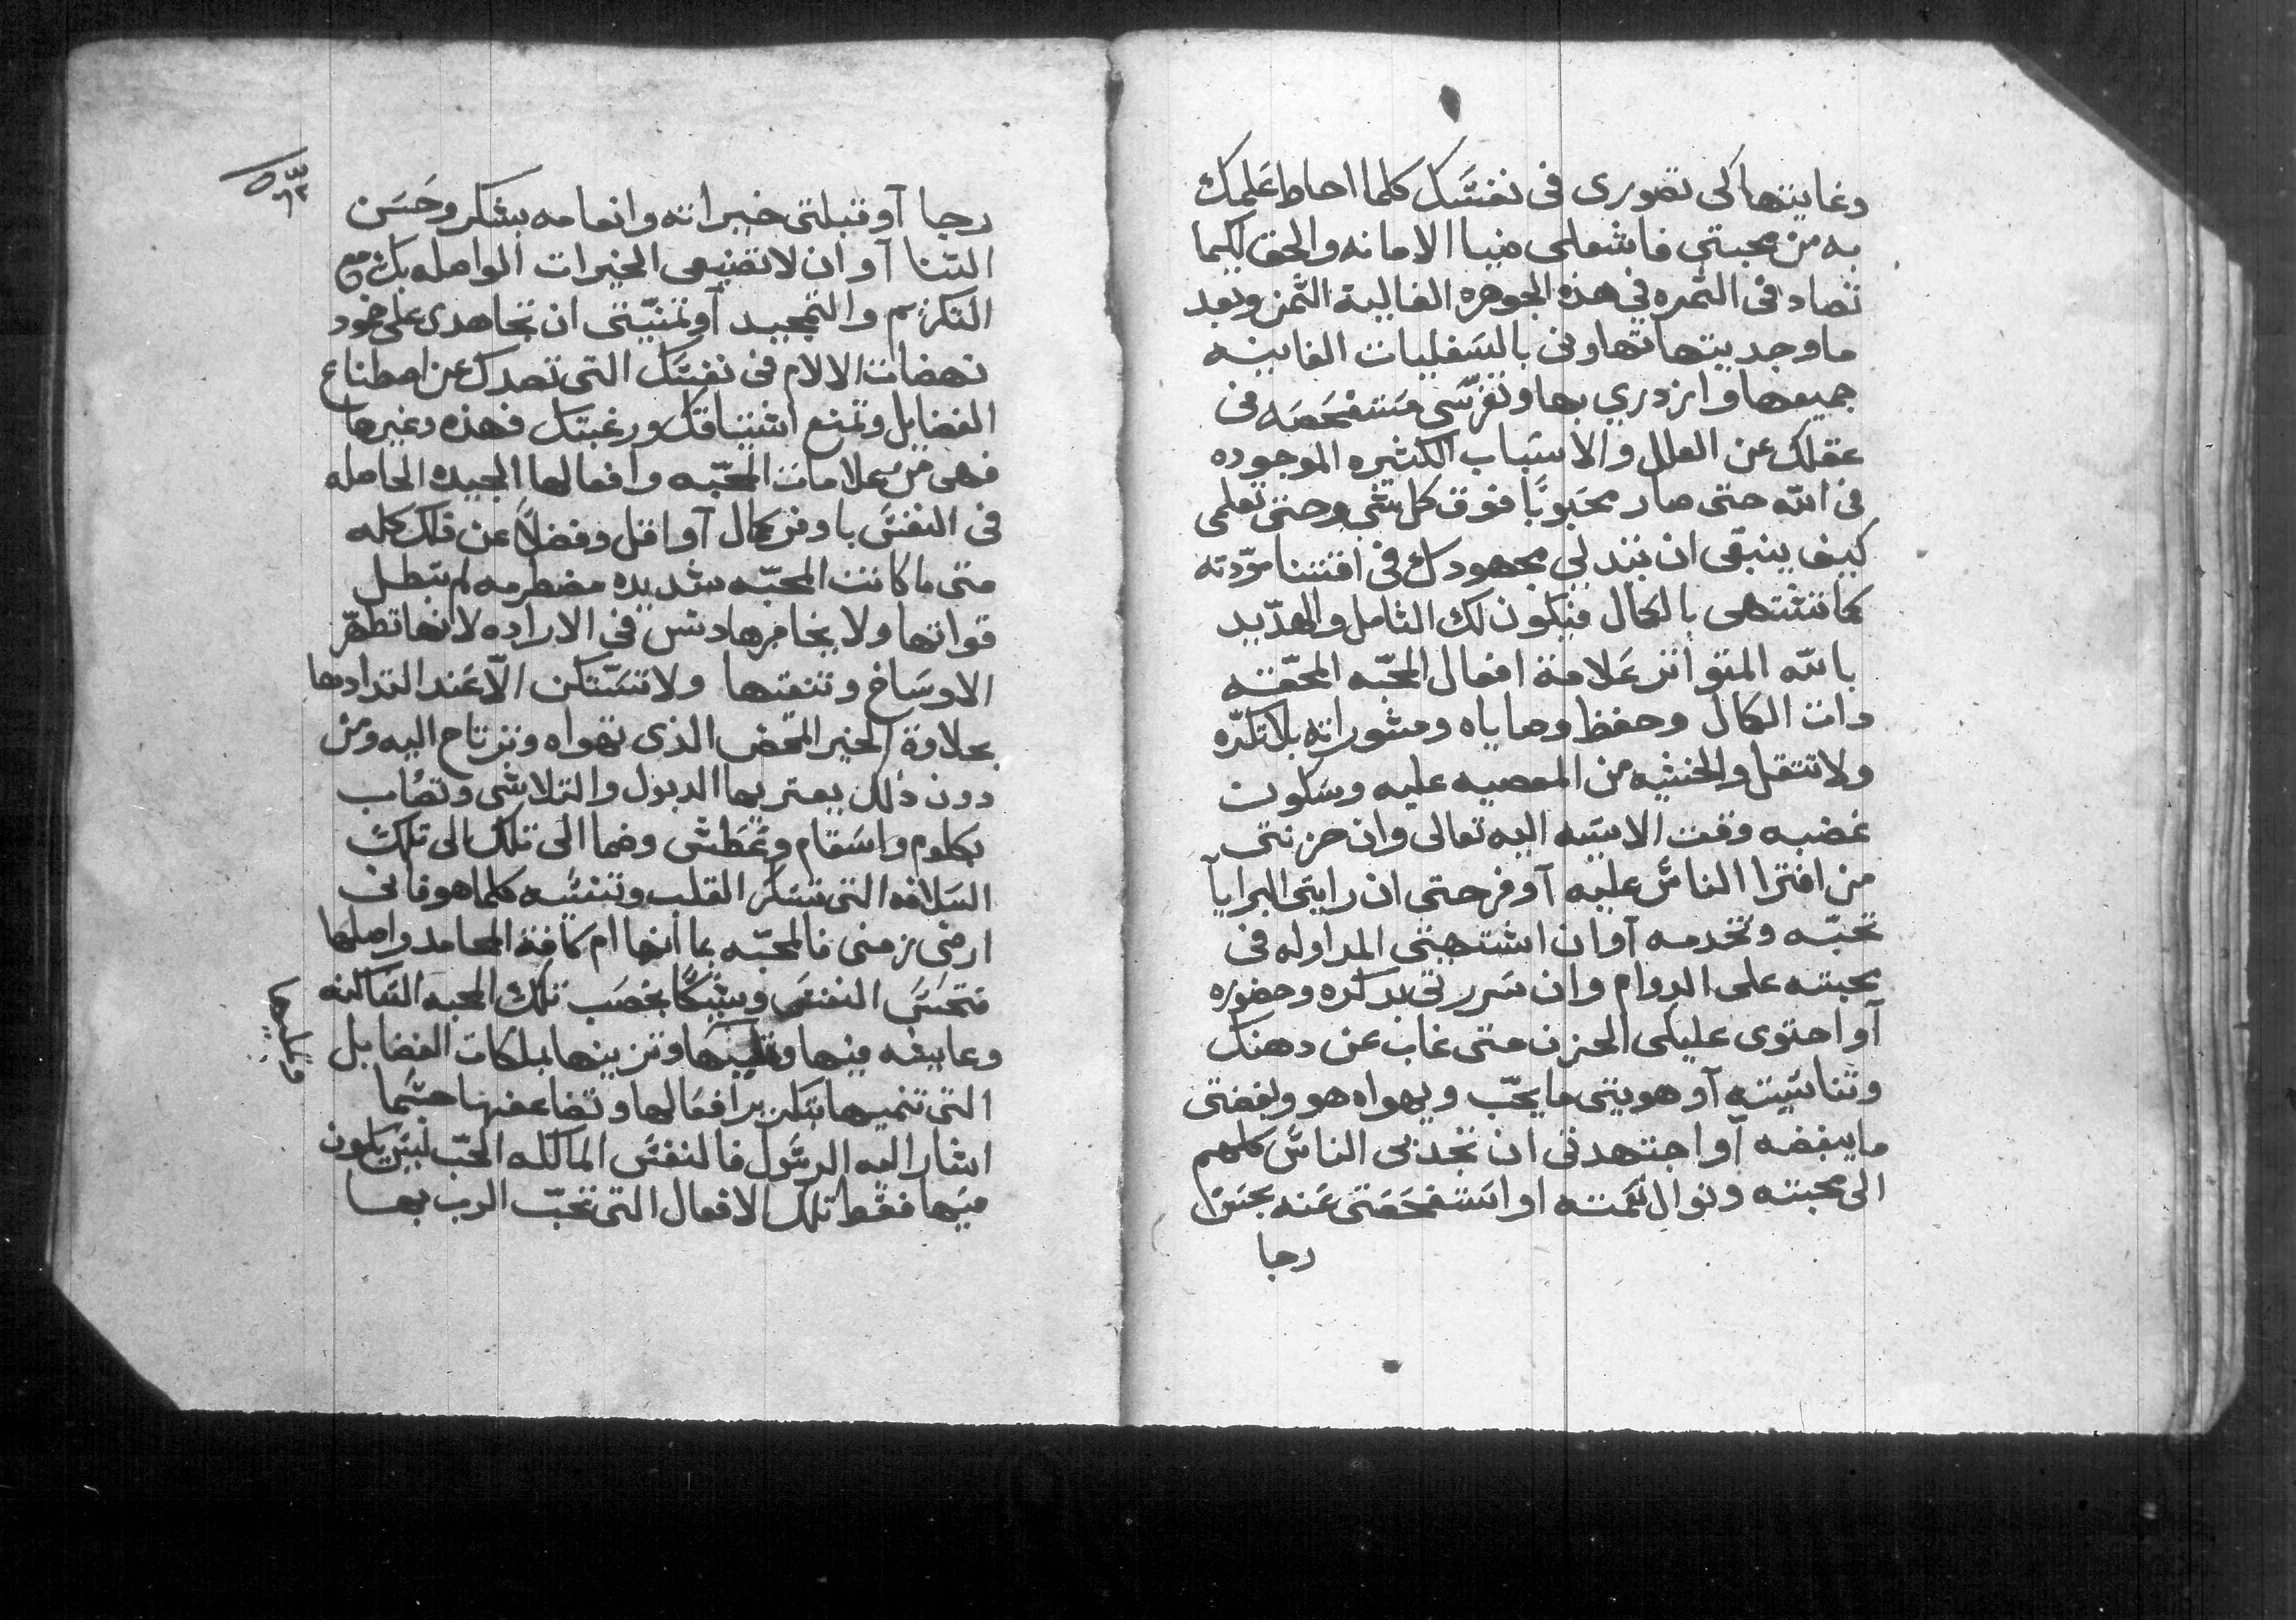 وغايتها كى تصورى فى نفسَّك كلما احاط عَلمِك
به من محبتي فاشعلى ضيا الامانه والحق لكيما
تصاد فى الثمره في هذه الجوهره الغالية الثمن وبعد
ما وجديتها تهاونى بالسَفليات الفانيه
جميعها وازدري بها وتفرّسَى مستفحَصَه فى
عقلك عن العلل والاسَباب الكثيره الموجوده
فى الله حتى صار محَبوبًا فوق كل شي وحتى تعلمى
كيف ينبغى ان تبدلي مجهودك فى اقتنا مودّته
كما تشتهى بالكمال فيكون لك التامل والهدّيد
بالله المتواتر عَلامة افعال المحبّه المحقّه
دات الكمال وحفظ وصاياه ومشوراته بلا تكرّه
ولا تتقل والخشيه من المعصيه عليه وسَكوت
غضبه وقت الاسَيه اليه تعالى وان حزنتى
من افترا الناسَّ عليه آو فرحتى ان رايتى البرايآ
تحبّه وتخدمه آو ان اشتهيتى المداوله فى
محبته على الدوام وان سَررتى بدكره وحضوره
آو احتوى عليكى الحزن متى غاب عن دهنك
وتناسَيتيه آو هويتى ما يحّب ويهواه هو وبغضتى
ما يبغضه آو اجتهدتى ان تجدبى الناسَّ كلهم
الى محبته ونوال نعَمته او استفحَصَتى عَنه بحسَن
رجا
رجا آو قبلتى خيراته وانعامه بشكر وحَسَن
التنا آو ان لا تضيعى الخيرات الواصله بك مع
التكريم والتمجيد آو تمنيّتى ان تجاهدى على خمود
نهضات الالام فى نفسَّك التى تصدك عن اصطناع
الفضايل وتمنع اشتياقك ورغبتك فهذه وغيرها
فهى من علامات المحبّه وافعالها الجيده الحاصله
فى النفسَّ باوفر كمال آو اقل وفضلًا عن دلك كله
متى ما كانت المحبّه شديده مضطرمه لم تبطل
قواتها ولا يخامرها دنس فى الاراده لانها تطهّر
الاوسَاخ وتنقتها ولا تسَّتكن الّا عَند التدادها
بحلاوة الخير المحَض الذى تهواه وترتاح اليه ومن
دون ذلك يعتريها الدبول والتلاشى وتصُاب
بكلوم واسَقام وعَطش وضما الى تلك الى تلك
السَلافه التى تسَكر القلب وتنسَّه كلما هو فانى
ارضى زمنى فالمحبّه بما انها ام كافة المحامد واصلها
فتحسَّ النفسَ وبنيكًا بخصَب تلك المحبه السَاكنه
وعايفه فيها وتزينها بملكات الفضايل
وتكليها
التى تنميها بتكرير افعَالها وتضاعفها حسَّبما
اشار اليه الرسَّول فالنفسَّ المالكه الحّب ليسَّ يكون
فيها فقط تلك الافعال التى تحّب الرب بها